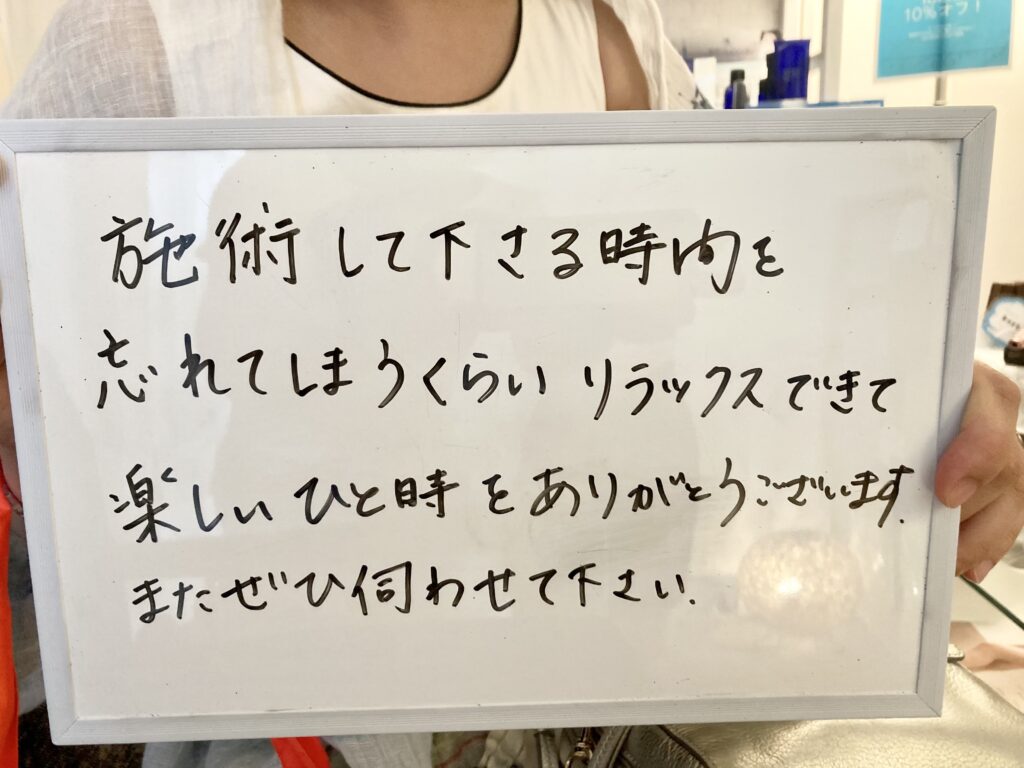 10%オフ!
施術して下さる時間を
忘れてしまうくらいリラックスできて
楽しいひと時をありがとうございます.
またぜひ伺わせて下さい.